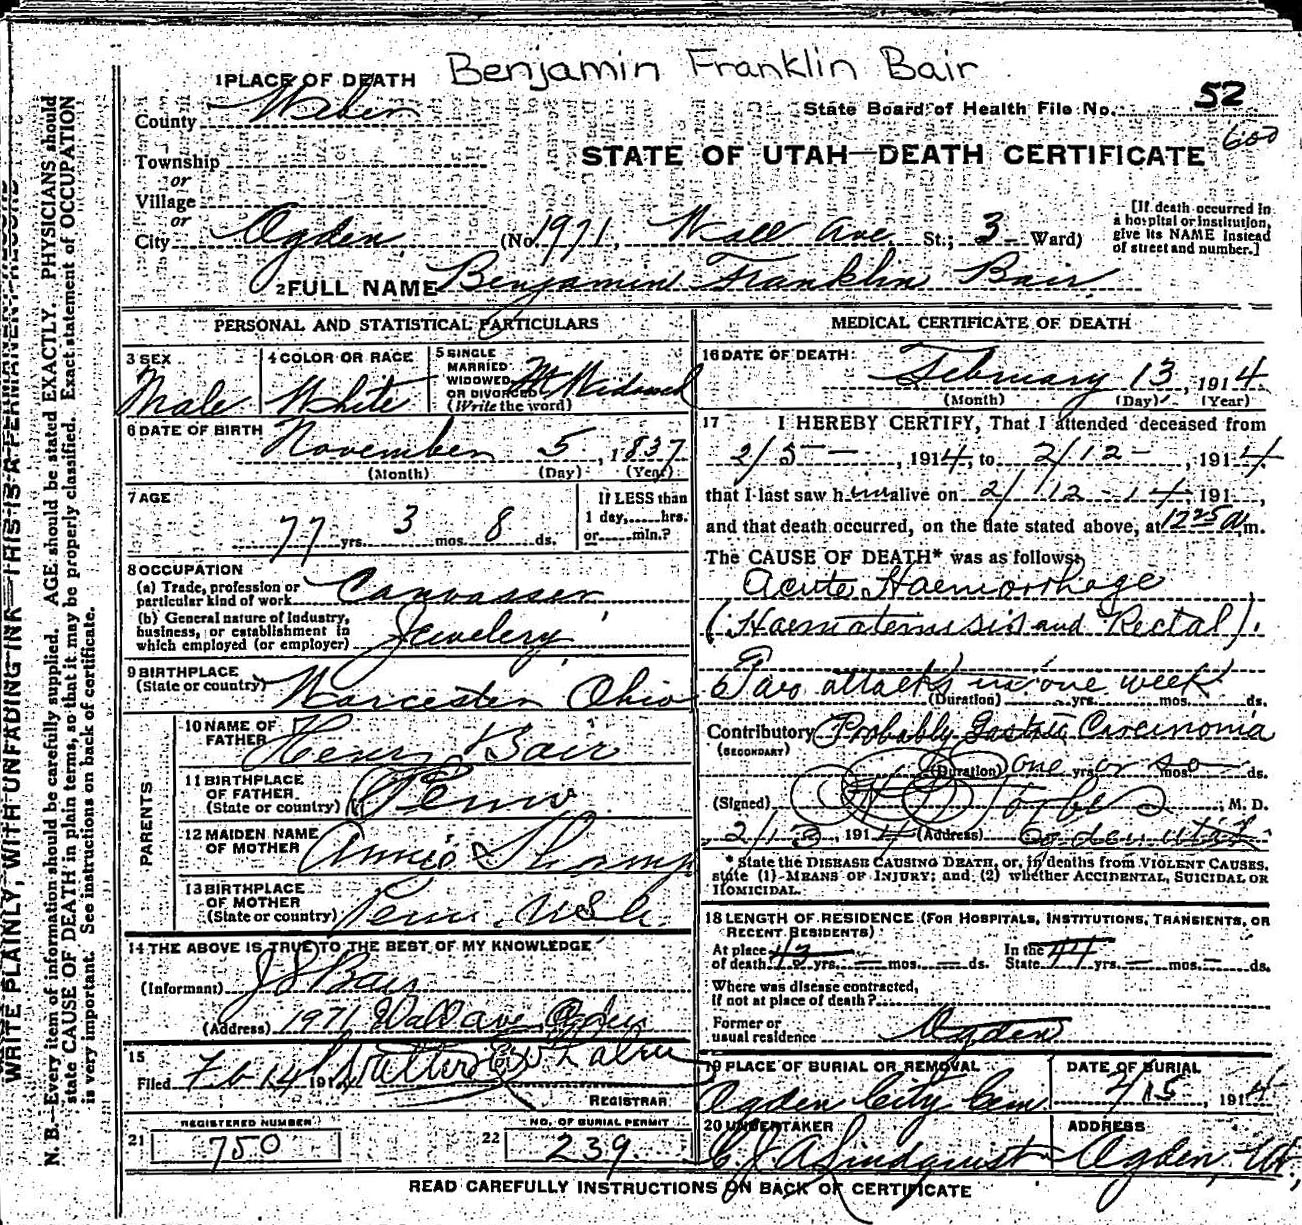 Benjamin Franklin Bair
1 PLACE OF DEATH
County Weber
State Board of Health File No. 52
600
Township
or
Village
or
STATE OF UTAH—DEATH CERTIFICATE
City Ogden (No. 1971, Wall Ave. St.; 3 Ward)
[If death occurred in
a hospital or institution,
give its NAME instead
of street and number.]
2 FULL NAME Benjamin Franklin Bair.
PERSONAL AND STATISTICAL PARTICULARS
3 SEX Male
4 COLOR OR RACE White
5 SINGLE
MARRIED
WIDOWED
OR DIVORCED
(Write the word) Widowed
6 DATE OF BIRTH November 5, 1837
(Month) (Day) (Year)
7 AGE
77 yrs. 3 mos. 8 ds.
If LESS than
1 day,......hrs.
or......min.?
8 OCCUPATION
(a) Trade, profession or
particular kind of work Canvasser
(b) General nature of Industry,
business, or establishment in
which employed (or employer) Jewelery
9 BIRTHPLACE
(State or country) Ohio
PARENTS
10 NAME OF
FATHER Henry Bair
11 BIRTHPLACE
OF FATHER
(State or country) Penn.
12 MAIDEN NAME
OF MOTHER Annie
13 BIRTHPLACE
OF MOTHER
(State or country) Penn.
14 THE ABOVE IS TRUE TO THE BEST OF MY KNOWLEDGE
(Informant) Bair
(Address) 1971 Wall ave Ogden
15
Filed Feb 14 191
REGISTRAR
21 REGISTERED NUMBER
750
22 NO. OF BURIAL PERMIT
239.
MEDICAL CERTIFICATE OF DEATH
16 DATE OF DEATH: February 13, 1914.
(Month) (Day) (Year)
17 I HEREBY CERTIFY, That I attended deceased from
2/5 — , 1914, to 2/12 - , 1914
that I last saw him alive on 2/12-14, 191....,
and that death occurred, on the date stated above, at 1225 A.m.
The CAUSE OF DEATH* was as follows:
Acute Haemorrhage
(Haematemesis and Rectal).
Two attacks in one week
(Duration) yrs. mos. ds.
Contributory Probably Gastric Carcinoma
(SECONDARY)
(Duration) one yrs or so mos. ds.
(Signed) M. D.
2/13, 1914 (Address) Ogden Utah.
* State the DISEASE CAUSING DEATH, or, in deaths from VIOLENT CAUSES,
state (1) MEANS OF INJURY; and (2) whether ACCIDENTAL, SUICIDAL OR
HOMICIDAL.
18 LENGTH OF RESIDENCE (FOR HOSPITALS, INSTITUTIONS, TRANSIENTS, OR
RECENT RESIDENTS)
At place
of death 43 yrs. — mos. — ds.
In the
State 44 yrs. — mos. — ds.
Where was disease contracted,
if not at place of death?
Former or
usual residence Ogden
19 PLACE OF BURIAL OR REMOVAL
Ogden City Cem.
DATE OF BURIAL
2/15, 1914
20 UNDERTAKER
Lindquist
ADDRESS
Ogden, Ut.
READ CAREFULLY INSTRUCTIONS ON BACK OF CERTIFICATE
WRITE PLAINLY, WITH UNFADING INK—THIS IS A PERMANENT RECORD
N. B.—Every item of information should be carefully supplied. AGE should be stated EXACTLY. PHYSICIANS should
state CAUSE OF DEATH in plain terms, so that it may be properly classified. Exact statement of OCCUPATION
is very important. See instructions on back of certificate.